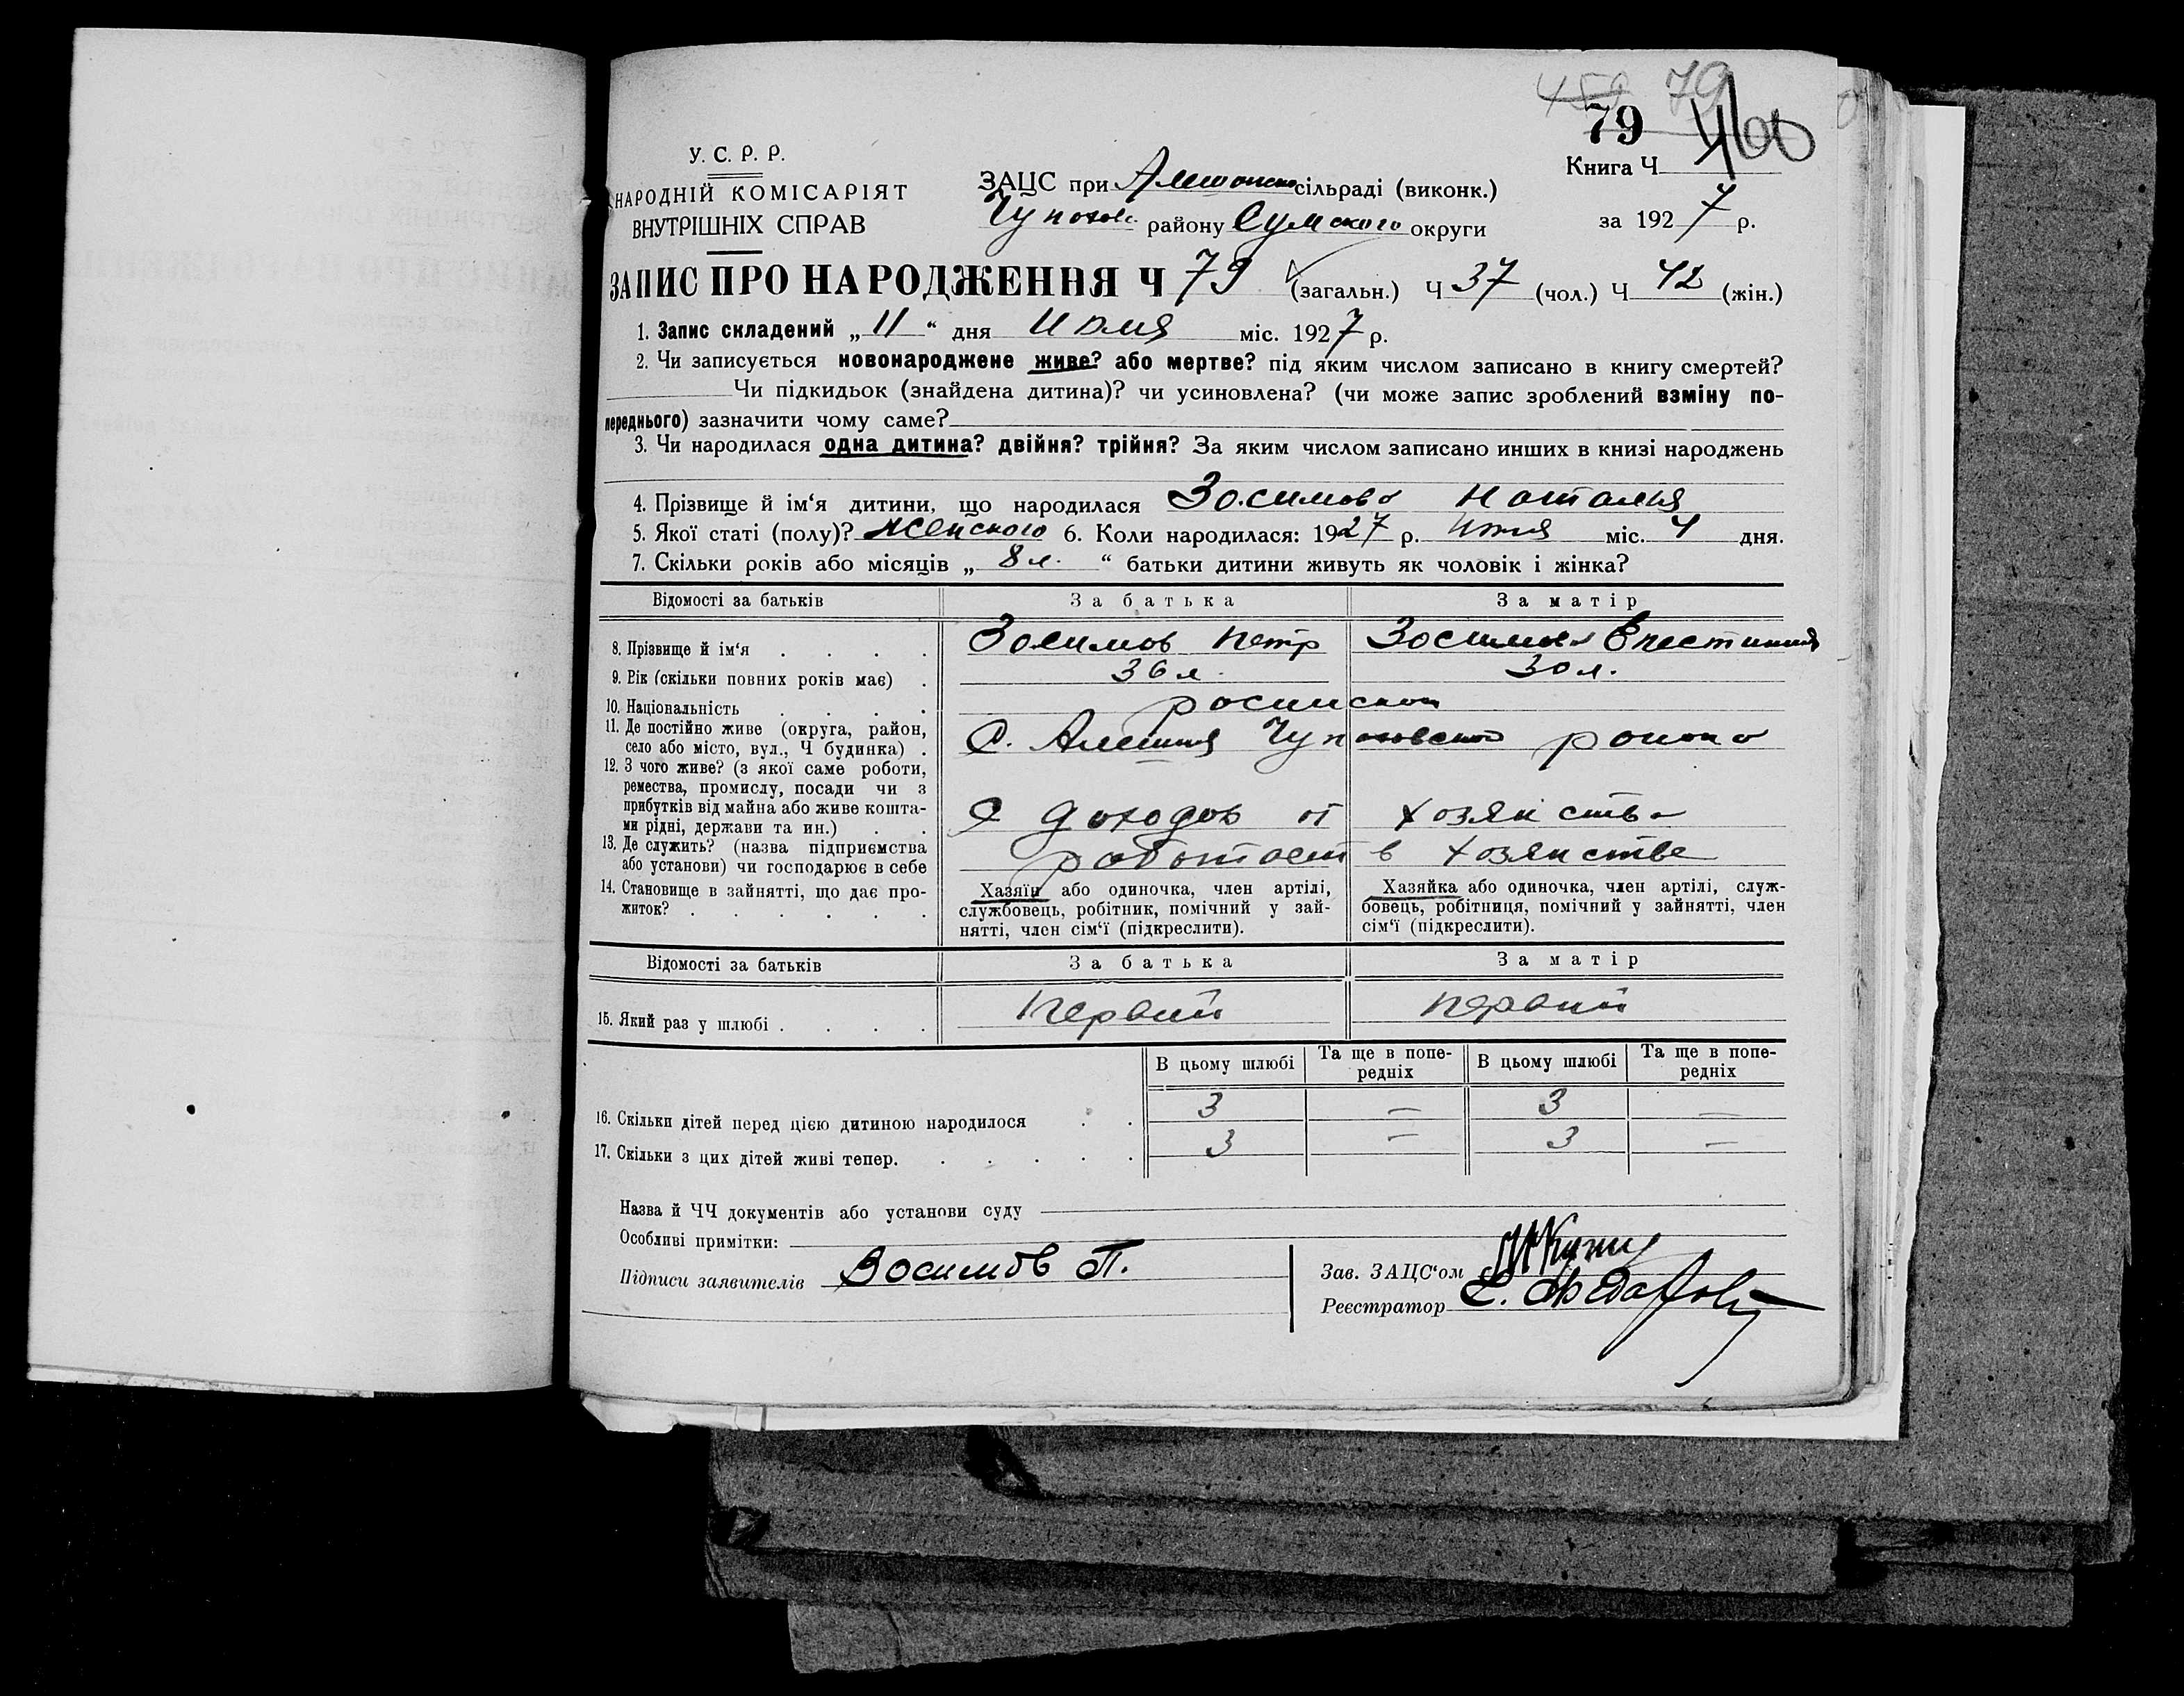 459 79
79 460
У. С. Р. Р.
НАРОДНІЙ КОМІСАРІЯТ
ВНУТРІШНІХ СПРАВ
ЗАЦС при сільраді (виконк.)
району Сумского округи
Книга Ч
за 1927 р.
ЗАПИС ПРО НАРОДЖЕННЯ Ч 79 (загальн.) Ч 37 (чол.) Ч 42 (жін.)
1. Запис складений „ 11 “ дня Июля міс. 1927 р.
2. Чи записується новонароджене живе? або мертве? під яким числом записано в книгу смертей?
Чи підкидьок (знайдена дитина)? чи усиновлена? (чи може запис зроблений взміну по-
переднього) зазначити чому саме?
3. Чи народилася одна дитина? двійня? трійня? За яким числом записано инших в книзі народжень
4. Прізвище й ім‘я дитини, що народилася Зосимова Наталья
5. Якої статі (полу)? Женского 6. Коли народилася: 1927 р. Июля міс. 4 дня.
7. Скільки років або місяців „ 8 л. “ батьки дитини живуть як чоловік і жінка?
Відомості за батьків За батька За матір
8. Прізвище й ім‘я . . . . Зосимов Петр Зосимова
9. Рік (скільки повних років має) . 36 л. 30 л.
10. Національність . . . .
11. Де постійно живе (округа, район,
село або місто, вул., Ч будинка) . С. Алешня района
12. З чого живе? (з якої саме роботи,
ремества, промислу, посади чи з
прибутків від майна або живе кошта-
ми рідні, держави та ин.) . . С доходов от хозяйства
13. Де служить? (назва підприємства
або установи) чи господарює в себе работает в хозяйстве
14. Становище в зайнятті, що дає про-
житок? . . . . . .
Хазяїн або одиночка, член артілі,
службовець, робітник, помічний у зай-
нятті, член сім‘ї (підкреслити).
Хазяйка або одиночка, член артілі, служ-
бовець, робітниця, помічний у зайнятті, член
сім‘ї (підкреслити).
Відомості за батьків За батька За матір
15. Який раз у шлюбі . . . . Первый Первый
В цьому шлюбі Та ще в попе-
редніх В цьому шлюбі Та ще в попе-
редніх
16. Скільки дітей перед цією дитиною народилося . . 3 — 3 —
17. Скільки з цих дітей живі тепер. . . . . . 3 — 3 —
Назва й ЧЧ документів або установи суду
Особливі примітки:
Підписи заявителів Зосимов П.
Зав. ЗАЦС‘ом
Реєстратор